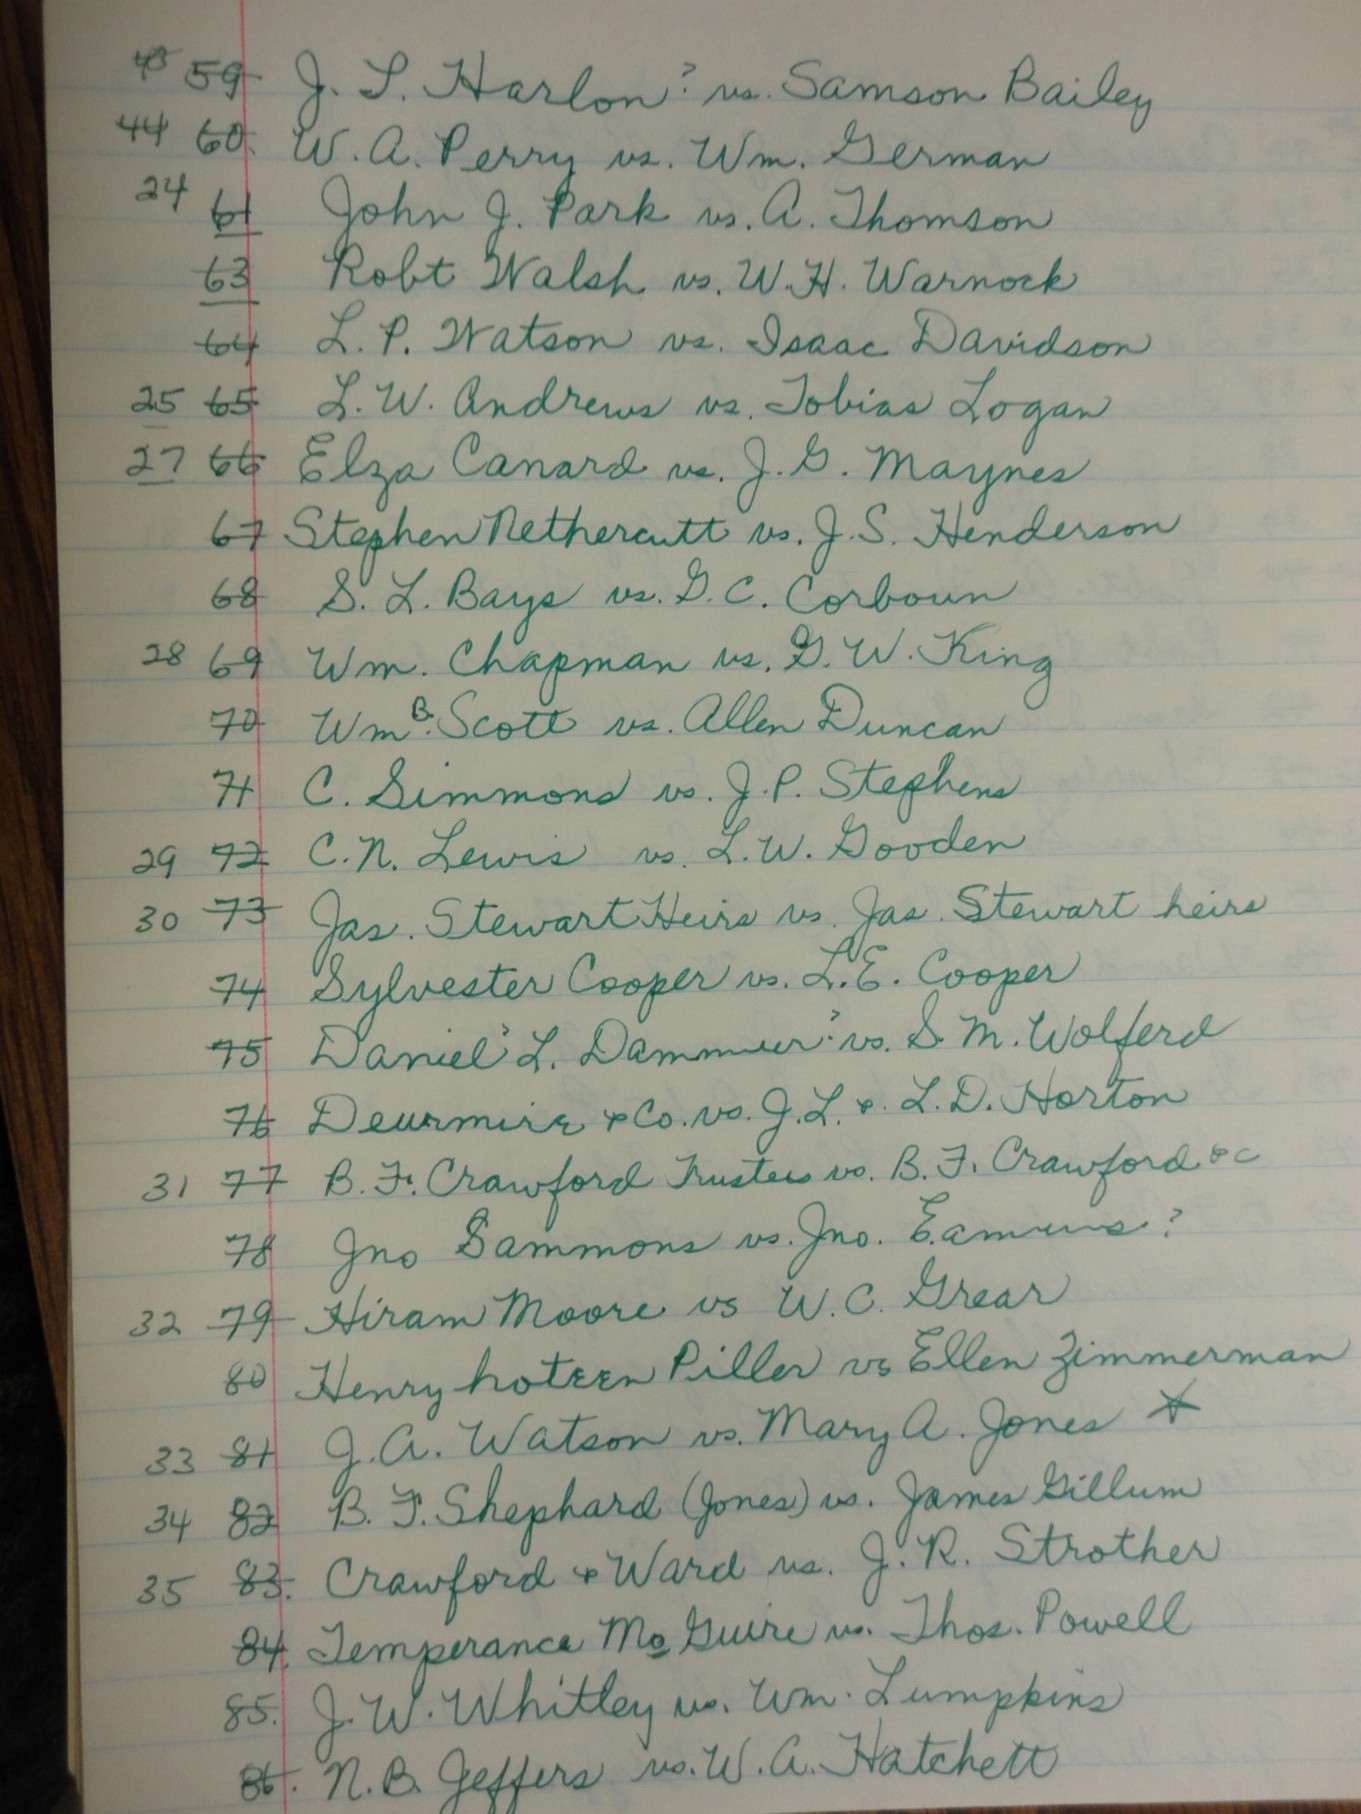 43 59 J. L. Harlon? vs. Samson Bailey
44 60. W. A. Perry vs. Wm. German
24 61 John J. Park vs. A. Thomson
63 Robt Walsh vs. W. H. Warnock
64 L. P. Watson vs. Isaac Davidson
25 65 L. W. Andrews vs. Tobias Logan
27 66 Elza Canard vs. J. G. Maynes
67 Stephen Nethercutt vs. J. S. Henderson
68 S. L. Bays vs. G. C. Corboun
28 69 Wm. Chapman vs. G. W. King
70 Wm B. Scott vs. Allen Duncan
71 C. Simmons vs. J. P. Stephens
29 72 C. N. Lewis vs. L. W. Gooden
30 73 Jas. Stewart Heirs vs. Jas. Stewart heirs
74 Sylvester Cooper vs. L. E. Cooper
75 Daniel? L. vs. S. M. Wolferd
76 Deurmire & Co. vs. J. L. & L. D. Horton
31 77 B. F. Crawford Trustees vs. B. F. Crawford &c
78 Jno Sammons vs. Jno. ?
32 79 Hiram Moore vs W. C. Grear
80 Henry hoteen Piller vs Ellen Zimmerman
33 81 J. A. Watson vs. Mary A. Jones ☆
34 82 B. F. Shephard (Jones) vs. James Gillum
35 83. Crawford & Ward vs. J. R. Strother
84. Temperance McGuire vs. Thos. Powell
85. J. W. Whitley vs. Wm. Lumpkins
86. N. B. Jeffers vs. W. A. Hatchett